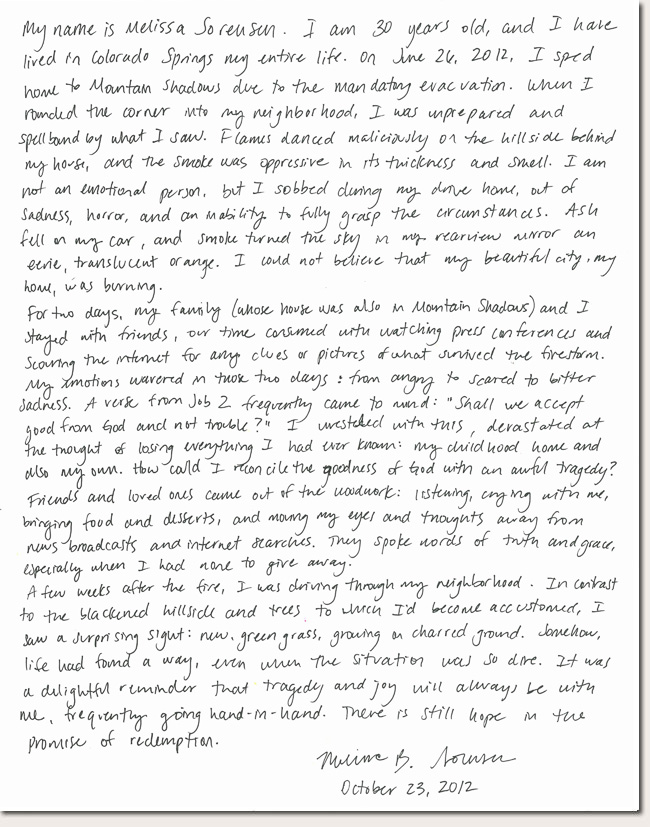 My name is Melissa Sorensen. I am 30 years old, and I have
lived in Colorado Springs my entire life. On June 26, 2012, I sped
home to Mountain Shadows due to the mandatory evacuation. When I
rounded the corner into my neighborhood, I was unprepared and
spellbound by what I saw. Flames danced maliciously on the hillside behind
my house, and the smoke was oppressive in its thickness and smell. I am
not an emotional person, but I sobbed during my drive home, out of
sadness, horror, and an inability to fully grasp the circumstances. Ash
fell on my car, and smoke turned the sky in my rearview mirror an
eerie, translucent orange. I could not believe that my beautiful city, my
home, was burning.
For two days, my family (whose house was also in Mountain Shadows) and I
stayed with friends, our time consumed with watching press conferences and
scouring the internet for any clues or pictures of what survived the firestorm.
My emotions wavered in those two days: from angry to scared to bitter
sadness. A verse from Job 2 frequently came to mind: "Shall we accept
good from God and not trouble?" I wrestled with this, devastated at
the thought of losing everything I had ever known: my childhood home and
also my own. How could I reconcile the goodness of God with an awful tragedy?
Friends and loved ones came out of the woodwork: listening, crying with me,
bringing food and desserts, and moving my eyes and thoughts away from
news broadcasts and internet searches. They spoke words of truth and grace,
especially when I had none to give away.
A few weeks after the fire, I was driving through my neighborhood. In contrast
to the blackened hillside and trees to which I'd become accustomed, I
saw a surprising sight: new, green grass, growing on charred ground. Somehow,
life had found a way, even when the situation was so dire. It was
a delightful reminder that tragedy and joy will always be with
me, frequently going hand-in-hand. There is still hope in the
promise of redemption.
Melissa B. Sorensen
October 23, 2012